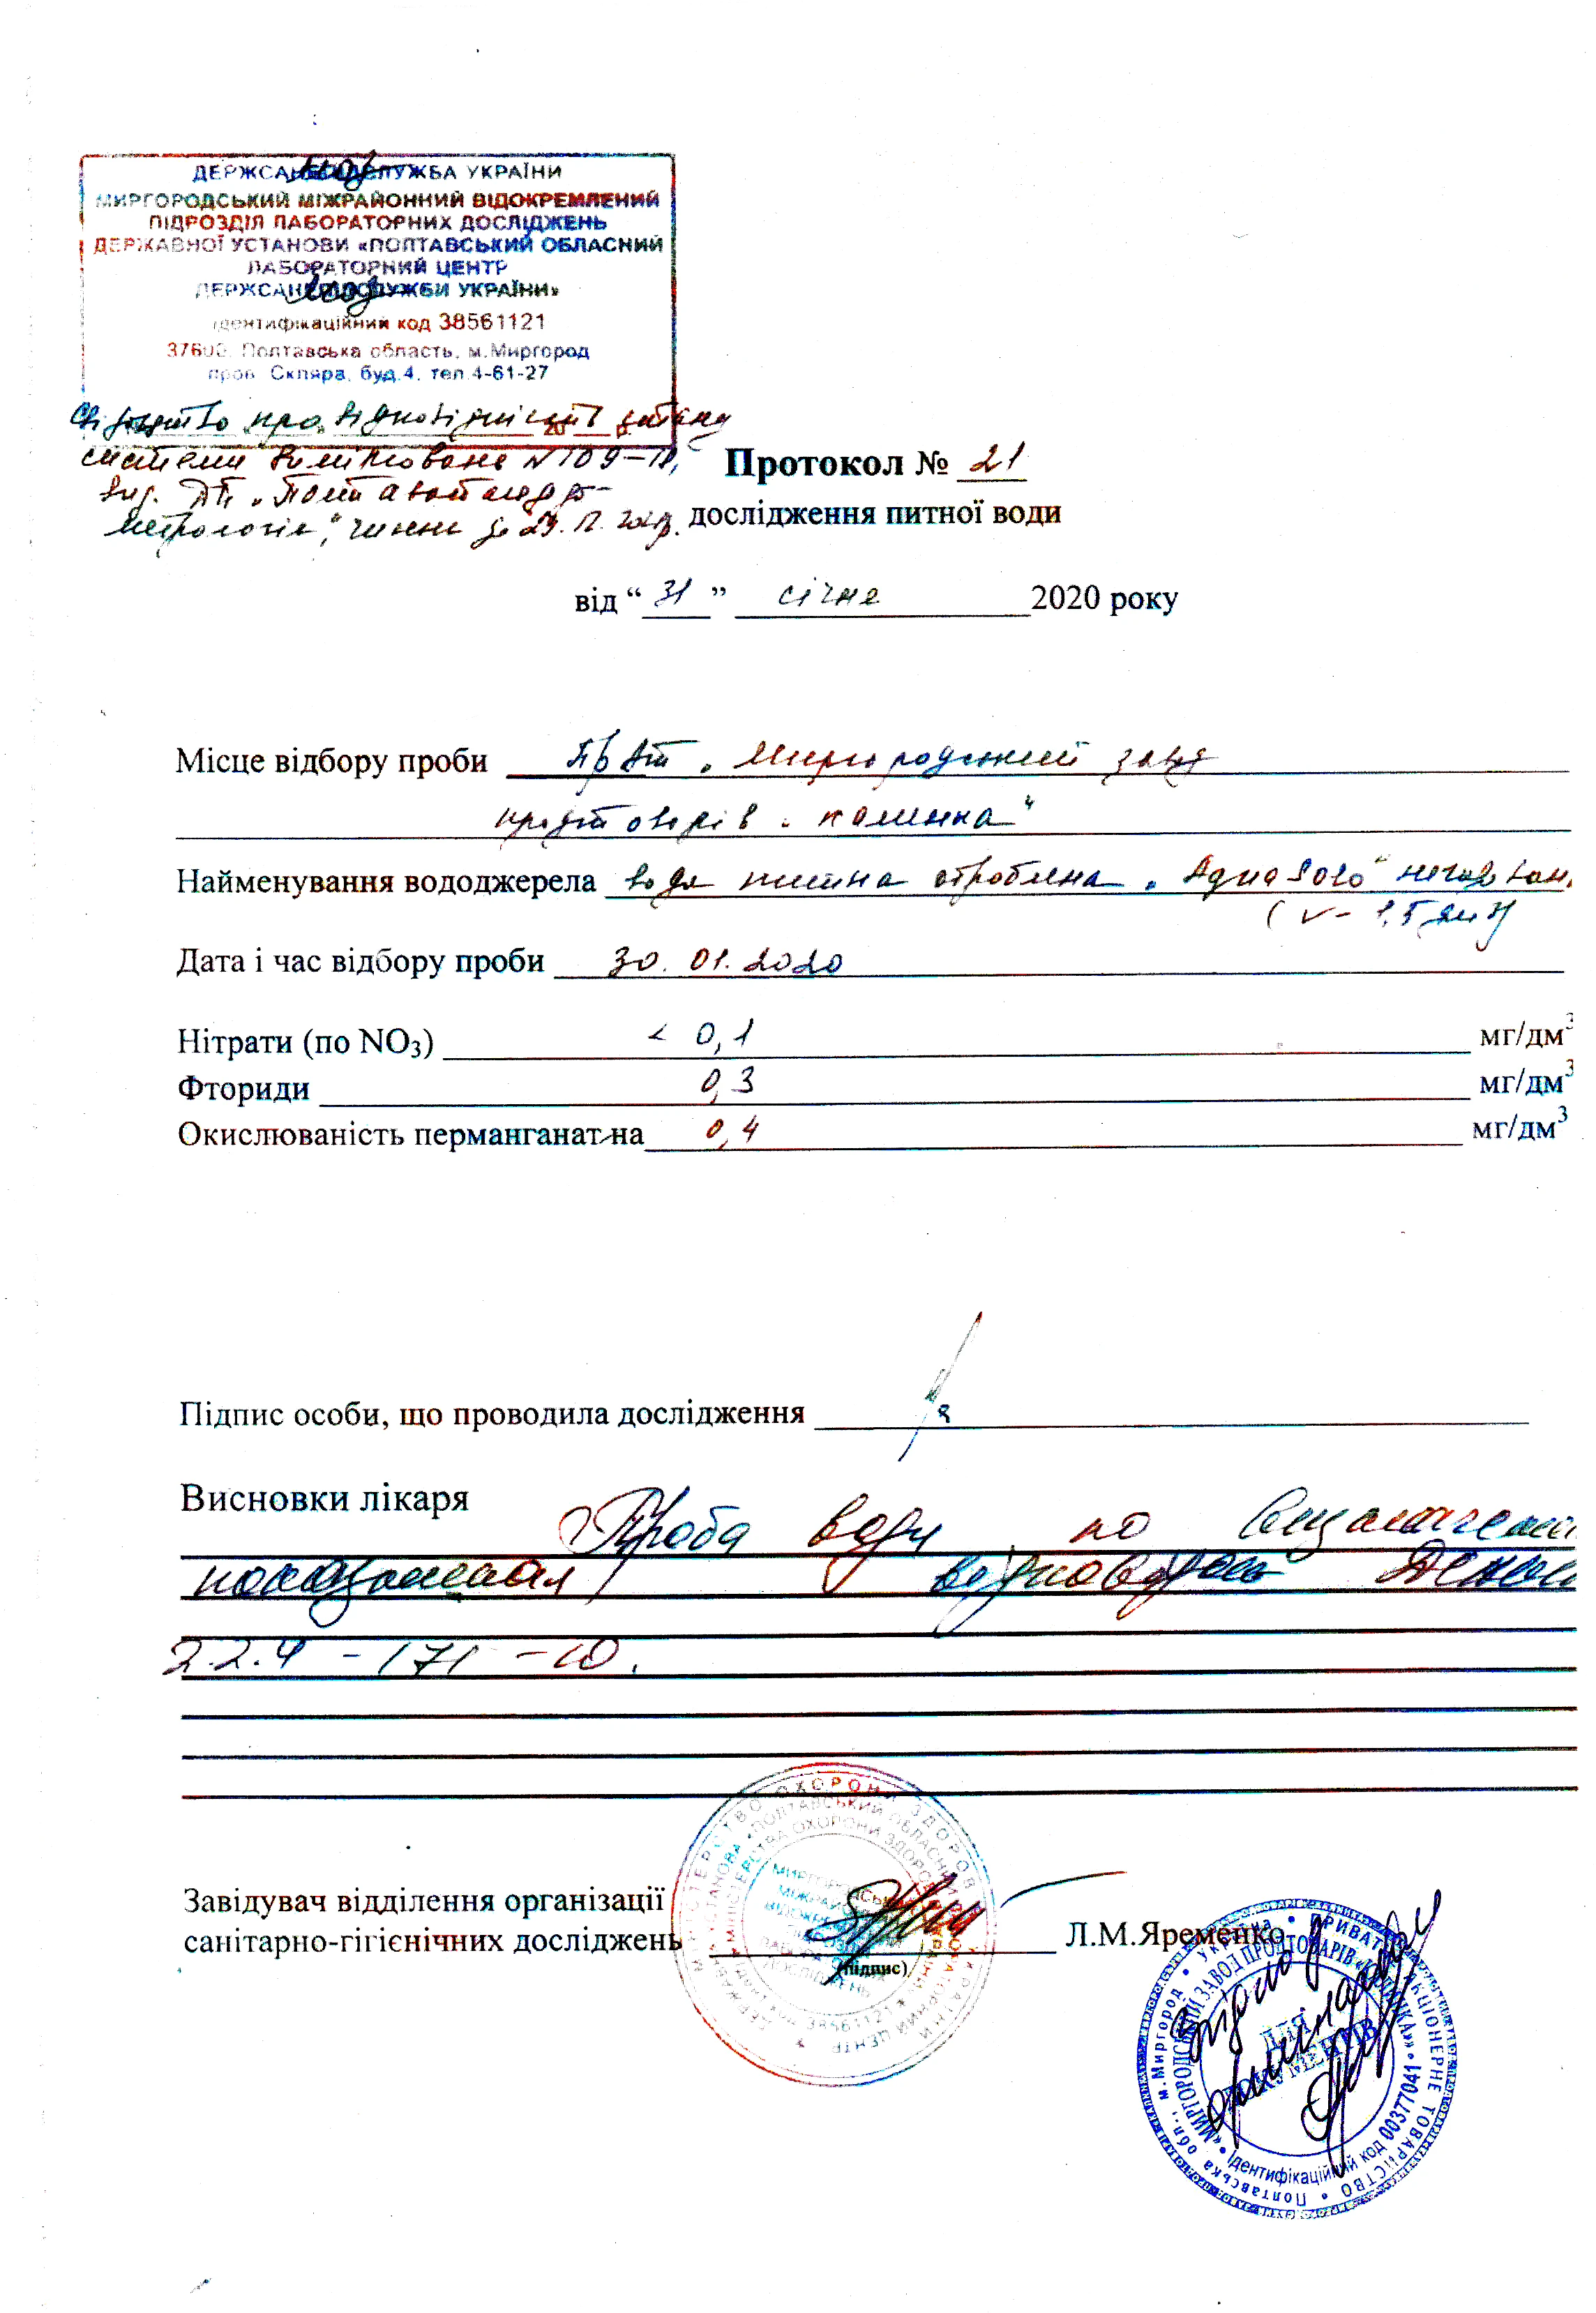 ДЕРЖСАНЕПІДСЛУЖБА УКРАЇНИ
МИРГОРОДСЬКИЙ МІЖРАЙОННИЙ ВІДОКРЕМЛЕНИЙ
ПІДРОЗДІЛ ЛАБОРАТОРНИХ ДОСЛІДЖЕНЬ
ДЕРЖАВНОЇ УСТАНОВИ «ПОЛТАВСЬКИЙ ОБЛАСНИЙ
ЛАБОРАТОРНИЙ ЦЕНТР
ДЕРЖСАНЕПІДСЛУЖБИ УКРАЇНИ»
Ідентифікаційний код 38561121
37600, Полтавська область, м.Миргород
пров. Скляра, буд.4, тел.4-61-27
Свідоцтво про відповідність
системи вимірювань N 109-18,
вид. ДП "Полтавастандарт-
метрологія", чинне до 29.12.
Протокол № 21
дослідження питної води
від “31” січня 2020 року
Місце відбору проби ПрАТ "Миргородський завод
продтоварів "Калинка"
Найменування вододжерела вода питна оброблена "Aqua Solo" негазован.
(V- 1,5 дм3)
Дата і час відбору проби 30.01.2020
Нітрати (по NO₃) < 0,1 мг/дм³
Фториди 0,3 мг/дм³
Окислюваність перманганатна 0,4 мг/дм³
Підпис особи, що проводила дослідження
Висновки лікаря
Проба води по
показниках відповідає ДСанПіН
2.2.4-171-10.
Завідувач відділення організації
санітарно-гігієнічних досліджень Л.М.Яременко
(підпис)
МІНІСТЕРСТВО ОХОРОНИ ЗДОРОВ'Я УКРАЇНИ
38561121
Україна • ПРИВАТНЕ АКЦІОНЕРНЕ ТОВАРИСТВО • Полтавська обл., м.Миргород
«МИРГОРОДСЬКИЙ ЗАВОД ПРОДТОВАРІВ «КАЛИНКА»» • Ідентифікаційний код 00377041
ДЛЯ
ДОКУМЕНТІВ
Згідно з
оригіналом